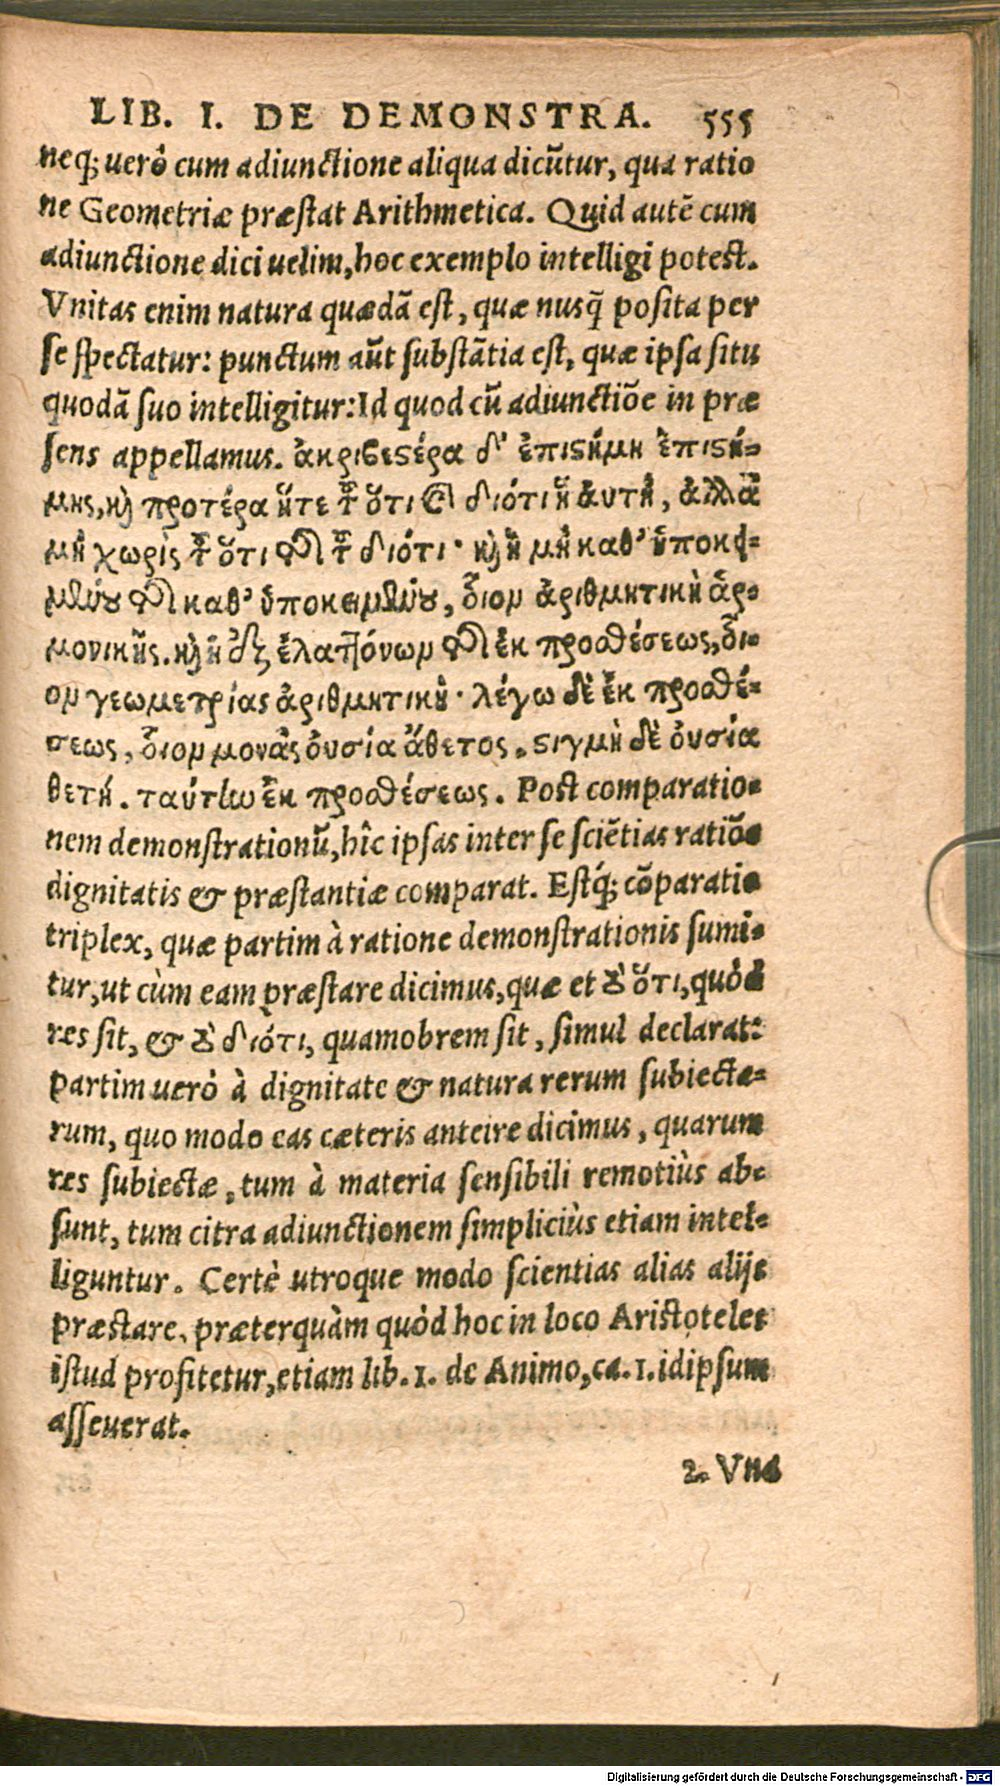 LIB. I. DE DEMONSTRA. 555
neq; uerò cum adiunctione aliqua dicūtur, qua ratio
ne Geometriæ præstat Arithmetica. Quid autē cum
adiunctione dici uelim, hoc exemplo intelligi potest.
Vnitas enim natura quædā est, quæ nusq̃ posita per
se spectatur: punctum aūt substātia est, quæ ipsa situ
quodā suo intelligitur: Id quod cū adiunctiōe in præ
sens appellamus. ἀκριβεϛέρα δ' ἐπιϛήμη ἐπιϛή-
μης, ϗ προτέρα ἥτε τοῦ ὅτι καὶ διότι ἡ ἀυτὴ, ἀλλὰ
μὴ χωρὶς τοῦ ὅτι τῆς τοῦ διότι· ϗ ἡ μὴ καθ' ὑποκει-
μένου τῆς καθ' ὑποκειμένου, οἷον ἀριθμητικὴ ἁρ-
μονικῆς. ϗ ἡ ἐξ ἐλαττόνων τῆς ἐκ προσθέσεως, οἷ-
ον γεωμετρίας ἀριθμητικὴ· λέγω δὲ ἐκ προσθέ-
σεως, οἷον μονὰς ὀυσία ἄθετος. ϛιγμὴ δὲ ὀυσία
θετή. ταύτην ἐκ προσθέσεως. Post comparatio-
nem demonstrationū, hîc ipsas inter se sciētias ratiōe
dignitatis & præstantiæ comparat. Estq́; cōparatio
triplex, quæ partim à ratione demonstrationis sumi-
tur, ut cùm eam præstare dicimus, quæ et τὸ ὅτι, quòd
res sit, & τὸ διότι, quamobrem sit, simul declarat:
partim uerò à dignitate & natura rerum subiecta-
rum, quo modo eas cæteris anteire dicimus, quarum
res subiectæ, tum à materia sensibili remotiùs ab-
sunt, tum citra adiunctionem simpliciùs etiam intel-
liguntur. Certè utroque modo scientias alias alijs
præstare, præterquàm quòd hoc in loco Aristoteles
istud profitetur, etiam lib. 1. de Animo, ca. 1. idipsum
asseuerat.
2. Vna
Digitalisierung gefördert durch die Deutsche Forschungsgemeinschaft - DFG